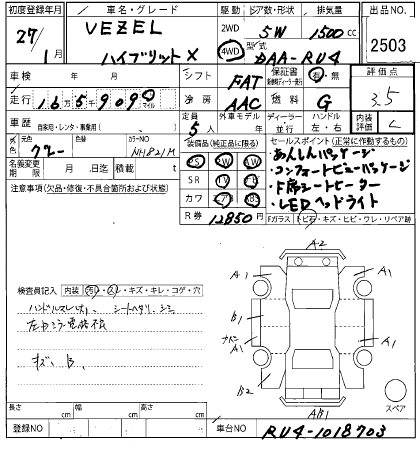 初度登録年月 車名・グレード 駆動 ドア数・形状 排気量 出品NO
27/1月 VEZEL 2WD 5W 1500cc 2503
ハイブリットX 4WD 型式 DAA-RU4
車検 年 月 シフト FAT 保証書 有・無 評価点
走行 165909 マイル 冷房 AAC 燃料 G 3.5
車歴 自家用・レンタ・事業用( ) 定員 5人 外車モデル 年 ディーラー 並行 ハンドル 左・右 内装評価 C
外色 元色 色替 カラーNO NH821M 装備品(純正品に限る) セールスポイント(正常に作動するもの)
PS PW SR TV カワ エアB ABS
・あんしんパッケージ
・コンフォートビューパッケージ
・F席シートヒーター
・LEDヘッドライト
名義変更期限 月 日迄 積載 t
注意事項(欠品・修復・不具合箇所および状態) R券 12850円 Fガラス トビ石・キズ・ヒビ・ワレ・リペア跡
検査員記入 内装 汚れ・スレ・キズ・キレ・コゲ・穴
シートヘタリ シミ
キズ、B、
A2
A1 A1
A1 A1
B2
スペア
長さ cm 幅 cm 高さ cm
登録NO 車台NO RU4-1018703